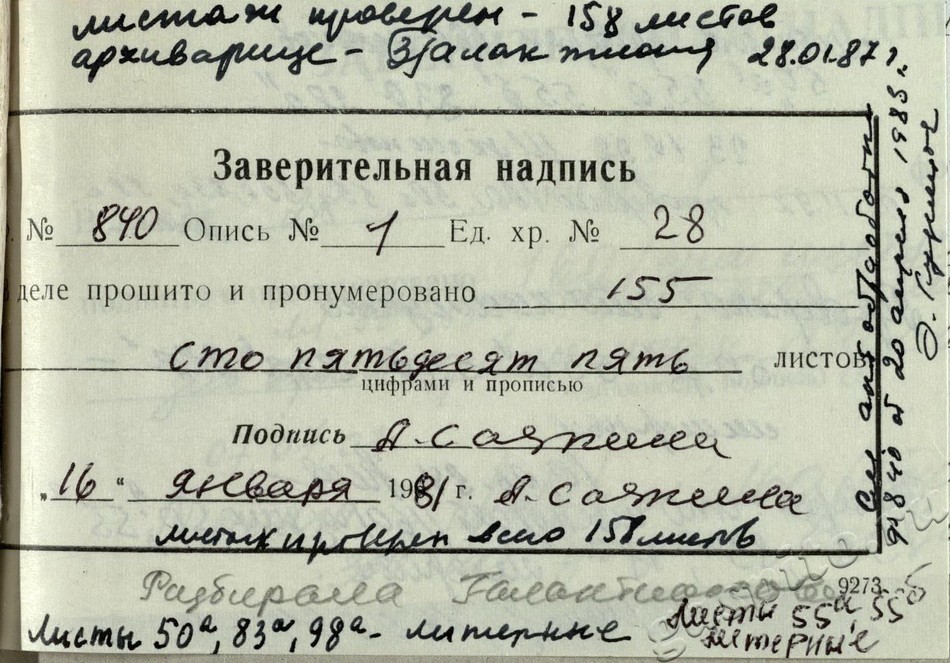 листаж проверен - 158 листов
архиварище - 28.01.87 г.
Заверительная надпись
. № 840 Опись № 1 Ед. хр. № 28
деле прошито и пронумеровано 155
сто пятьдесят пять листов
цифрами и прописью
Подпись А. Саяпина
„16“ января 1981 г. А. Саяпина
листаж проверен всего 158 листов
Разбирала
9273
Листы 50а, 83а, 98а - литерные
Листы 55а, 55б
литерные
См акт обработки
ф 840 от 20 апреля 1983 г.